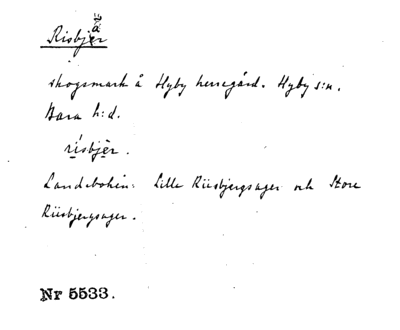 Risbjär
skogsmark å Hyby herregård. Hyby s:n.
Bara h:d.
rísbjèr.
Landebohen: Lille Riisbjergsager och Store
Riisbjergsager.
Nr 5533.